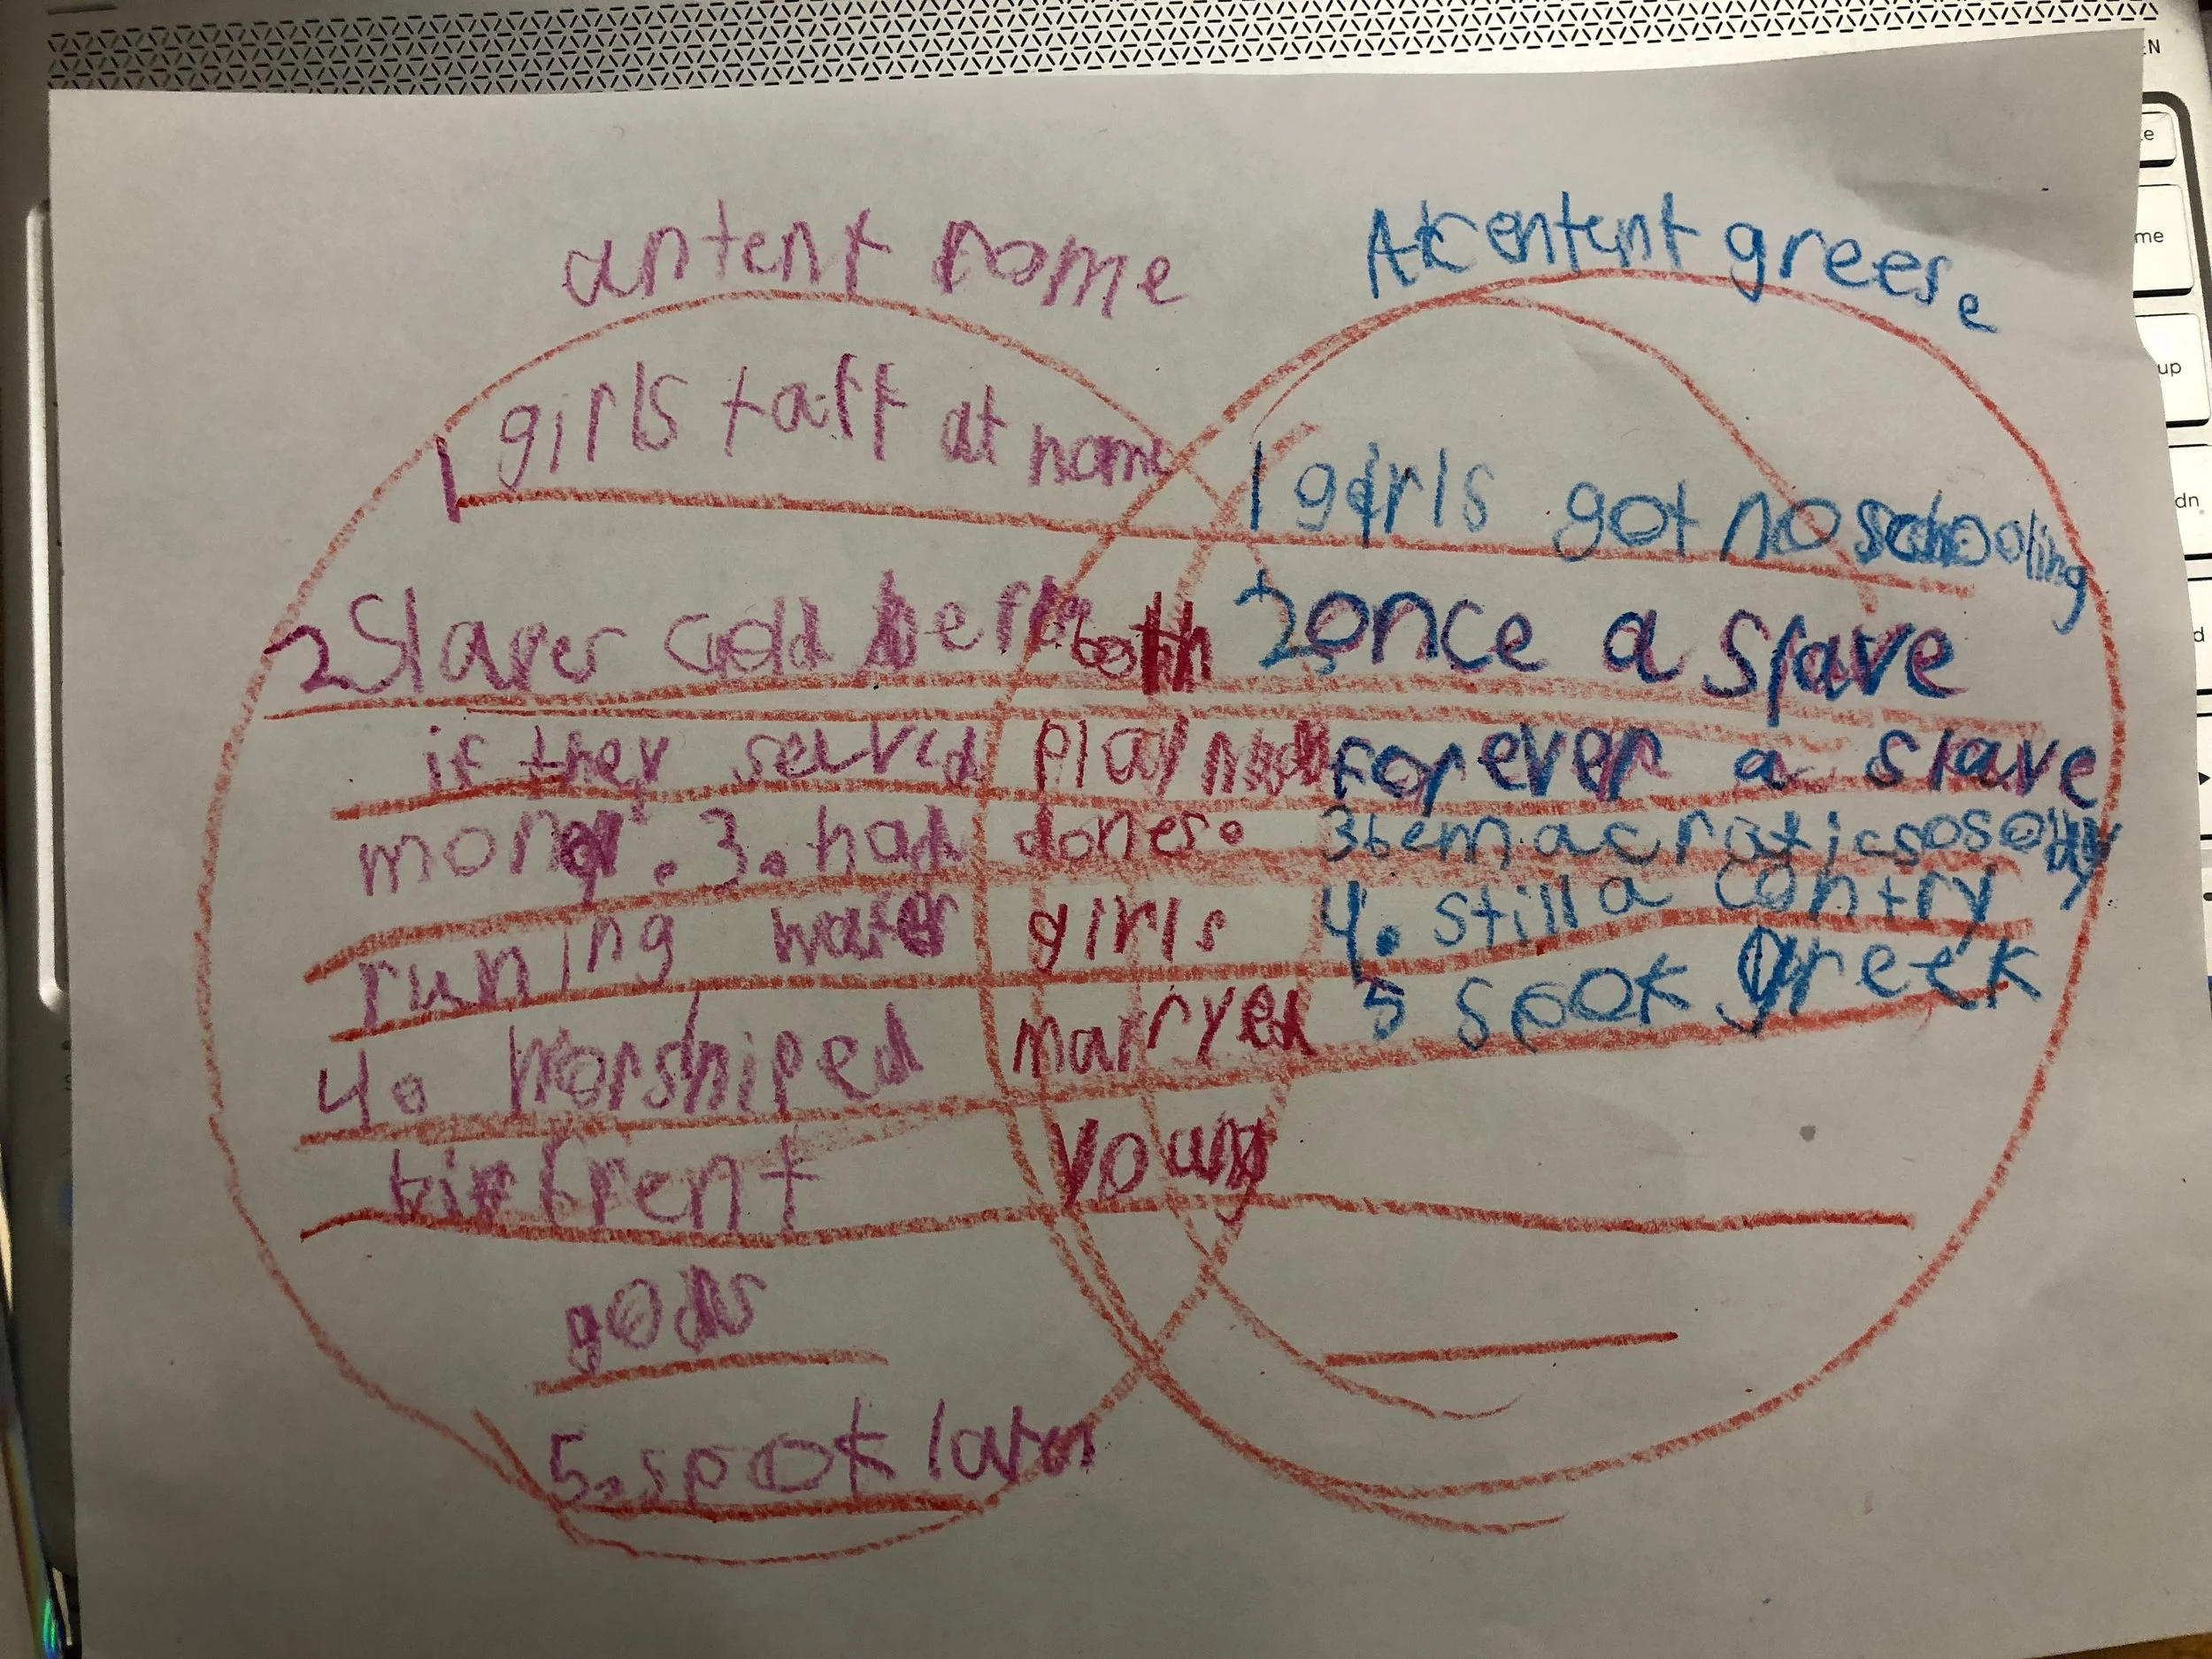 antent rome
Akcentent greese
1 girls taft at home
1 girls got no schooling
2 Slaves codd be
both
2 once a slave
if they served
play
forever a slave
money. 3. had
dones.
3 bemacratic sosoity
runing water
girls
4. still a contry
4. Worshiped
marryed
5 spok greek
young
gods
5. spok laten
N
e
me
up
dn
d